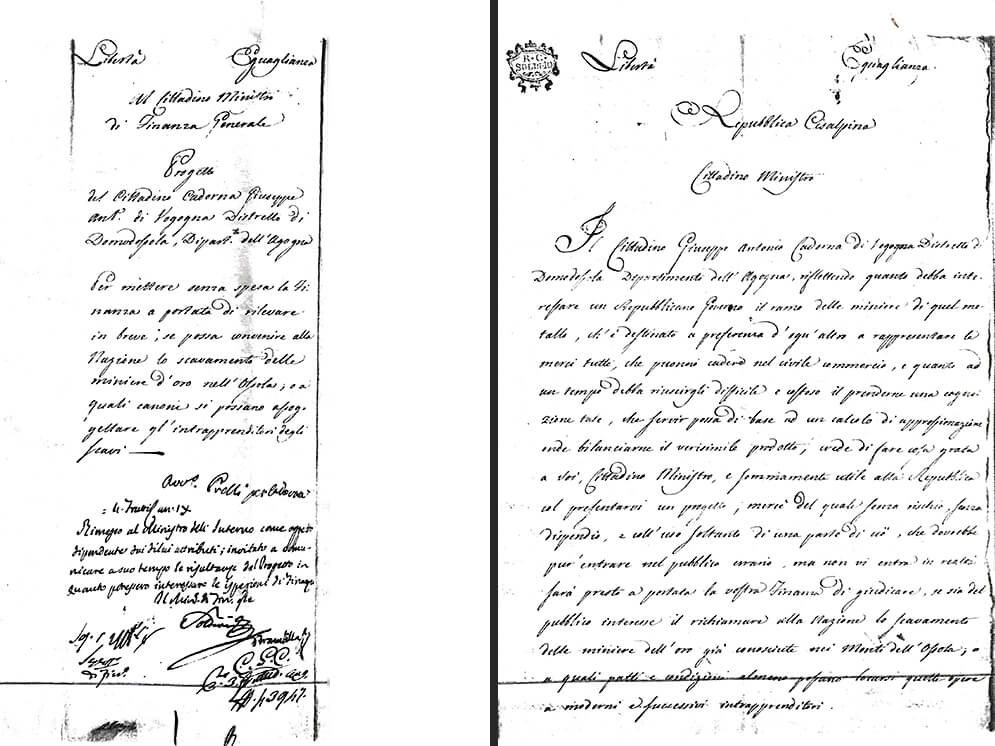 Libertà Eguaglianza
Al Cittadino Ministro
di Finanza Generale
Progetto
del Cittadino Caderna Giuseppe
Ant.° di Vogogna Distretto di
Domodossola, Dipart.to dell'Agogna
Per mettere senza spesa la Fi-
nanza a portata di rilevare
in breve; se possa convenire alla
Nazione lo scavamento delle
miniere d'oro nell'Ossola; o a
quali canoni si possano assog-
gettare gl'intrapprenditori degli
scavi.
Rimesso al Ministro dell'Interno come oggetto
dipendente dai di lui attributi; invitato a comu-
nicare a suo tempo le risultanze del Progetto in
quanto potessero interessare le ispezioni di Finanza
Il Min. di Fin.
R. C.
Libertà Eguaglianza.
Repubblica Cisalpina
Cittadino Ministro
Il Cittadino Giuseppe Antonio Caderna di Vogogna Distretto di
Domodossola Dipartimento dell'Agogna, riflettendo quanto debba inte-
ressare un Repubblicano Governo il ramo delle miniere di quel me-
tallo, ch'è destinato a preferenza d'ogn'altro a rappresentare le
merci tutte, che possono cadere nel civile commercio, e quanto ad
un tempo debba riuscirgli difficile e costoso il prenderne una cogni-
zione tale, che servir possa di base ad un calcolo di approssimazione
onde bilanciarne il verisimile prodotto; crede di fare cosa grata
a Voi, Cittadino Ministro, e sommamente utile alla Repubblica
col presentarvi un progetto, mercè del quale senza rischio, senza
dispendio, e coll'uso soltanto di una parte di ciò, che dovrebbe
pur'entrare nel pubblico erario, ma non vi entra in realtà
sarà presto a portata la vostra Finanza di giudicare, se sia del
pubblico interesse il richiamare alla Nazione lo scavamento
delle miniere dell'oro già conosciute nei Monti dell'Ossola; o
a quali patti e condizioni almeno possano locarsi quelle opere
a moderni e successivi intrapprenditori.